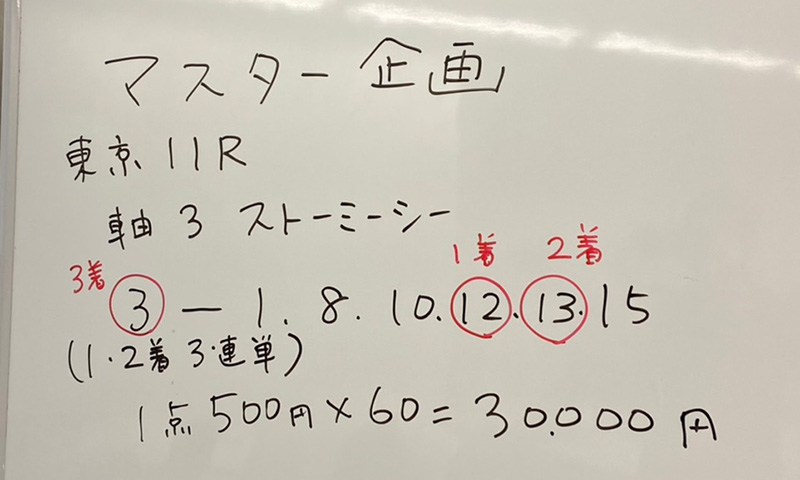 マスター企画
東京11R
軸3 ストーミーシー
1着 2着
3着
3 — 1. 8. 10. 12. 13. 15
(1・2着 3・連単)
1点500円×60=30.000円